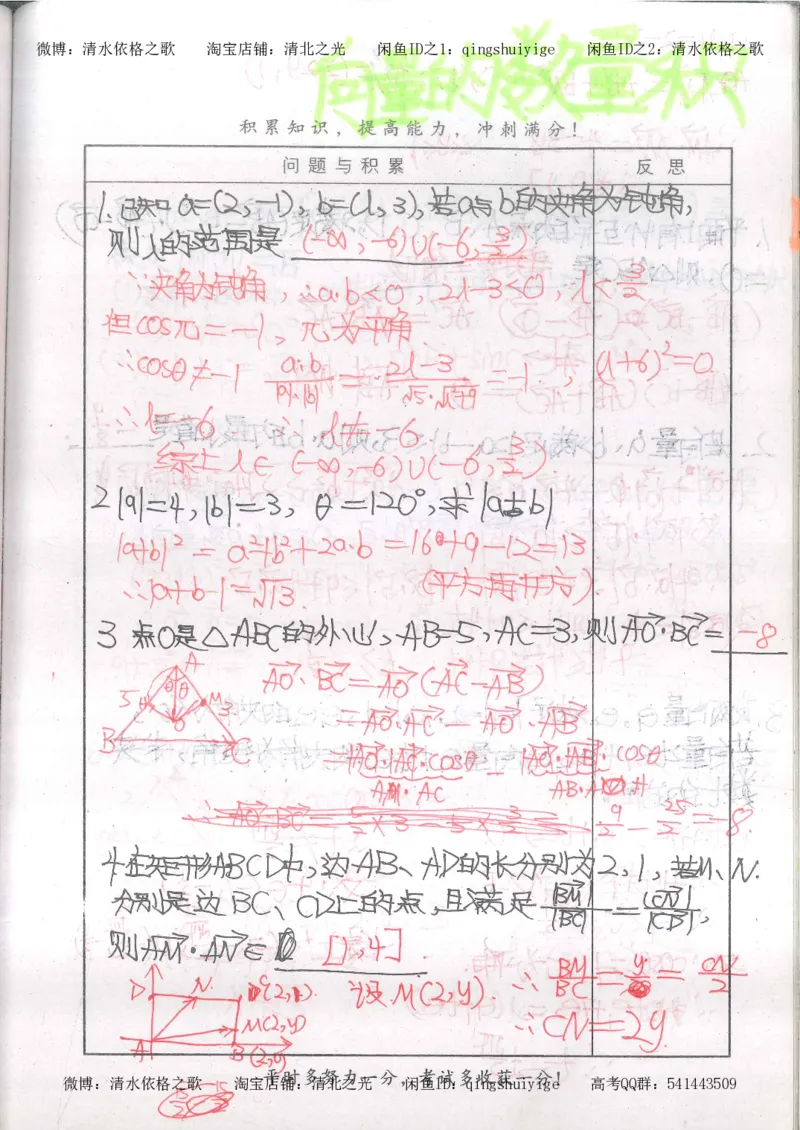 微博：清水依格之歌 淘宝店铺：清北之光 闲鱼ID之1：qingshuiyige 闲鱼ID之2：清水依格之歌
向量的数量积
积累知识，提高能力，冲刺满分！
问题与积累 反思
1.已知a=(2,-1),b=(λ,3),若a与b的夹角为钝角,
则λ的范围是 (-∞,-6)∪(-6,3/2)
∵夹角为钝角,∴a·b<0,2λ-3<0,λ<3/2
但cosπ=-1,π为平角
∴cosθ≠-1 a·b/|a|·|b| = 2λ-3/√5·√λ²+9 =-1, (λ+6)²=0
∴λ=-6 ∴λ≠-6
综上λ∈(-∞,-6)∪(-6,3/2).
2 |a|=4,|b|=3,θ=120°,求|a+b|
|a+b|²=a²+b²+2a·b=16+9-12=13
∴|a+b|=√13. (平方再开方).
3 点O是△ABC的外心,AB=5,AC=3,则AO·BC=-8
AO·BC=AO(AC-AB)
=AO·AC-AO·AB
=AO·AC·cosθ-AO·AB·cosθ
AM·AC
9/2-25/2=-8.
4.在矩形ABCD中,边AB、AD的长分别为2,1,若M、N.
分别是边BC、CD上的点,且满足|BM|/|BC|=|CN|/|CD|,
则AM·AN∈[1,4].
设M(2,y). ∴BM/BC=y=CN/2
∴CN=2y.
A B C M O 5 3 θ θ
D N C(2,1) M(2,y) A B
平时多努力一分，考试多收获一分！
微博：清水依格之歌 淘宝店铺：清北之光 闲鱼ID：qingshuiyige 高考QQ群：541443509